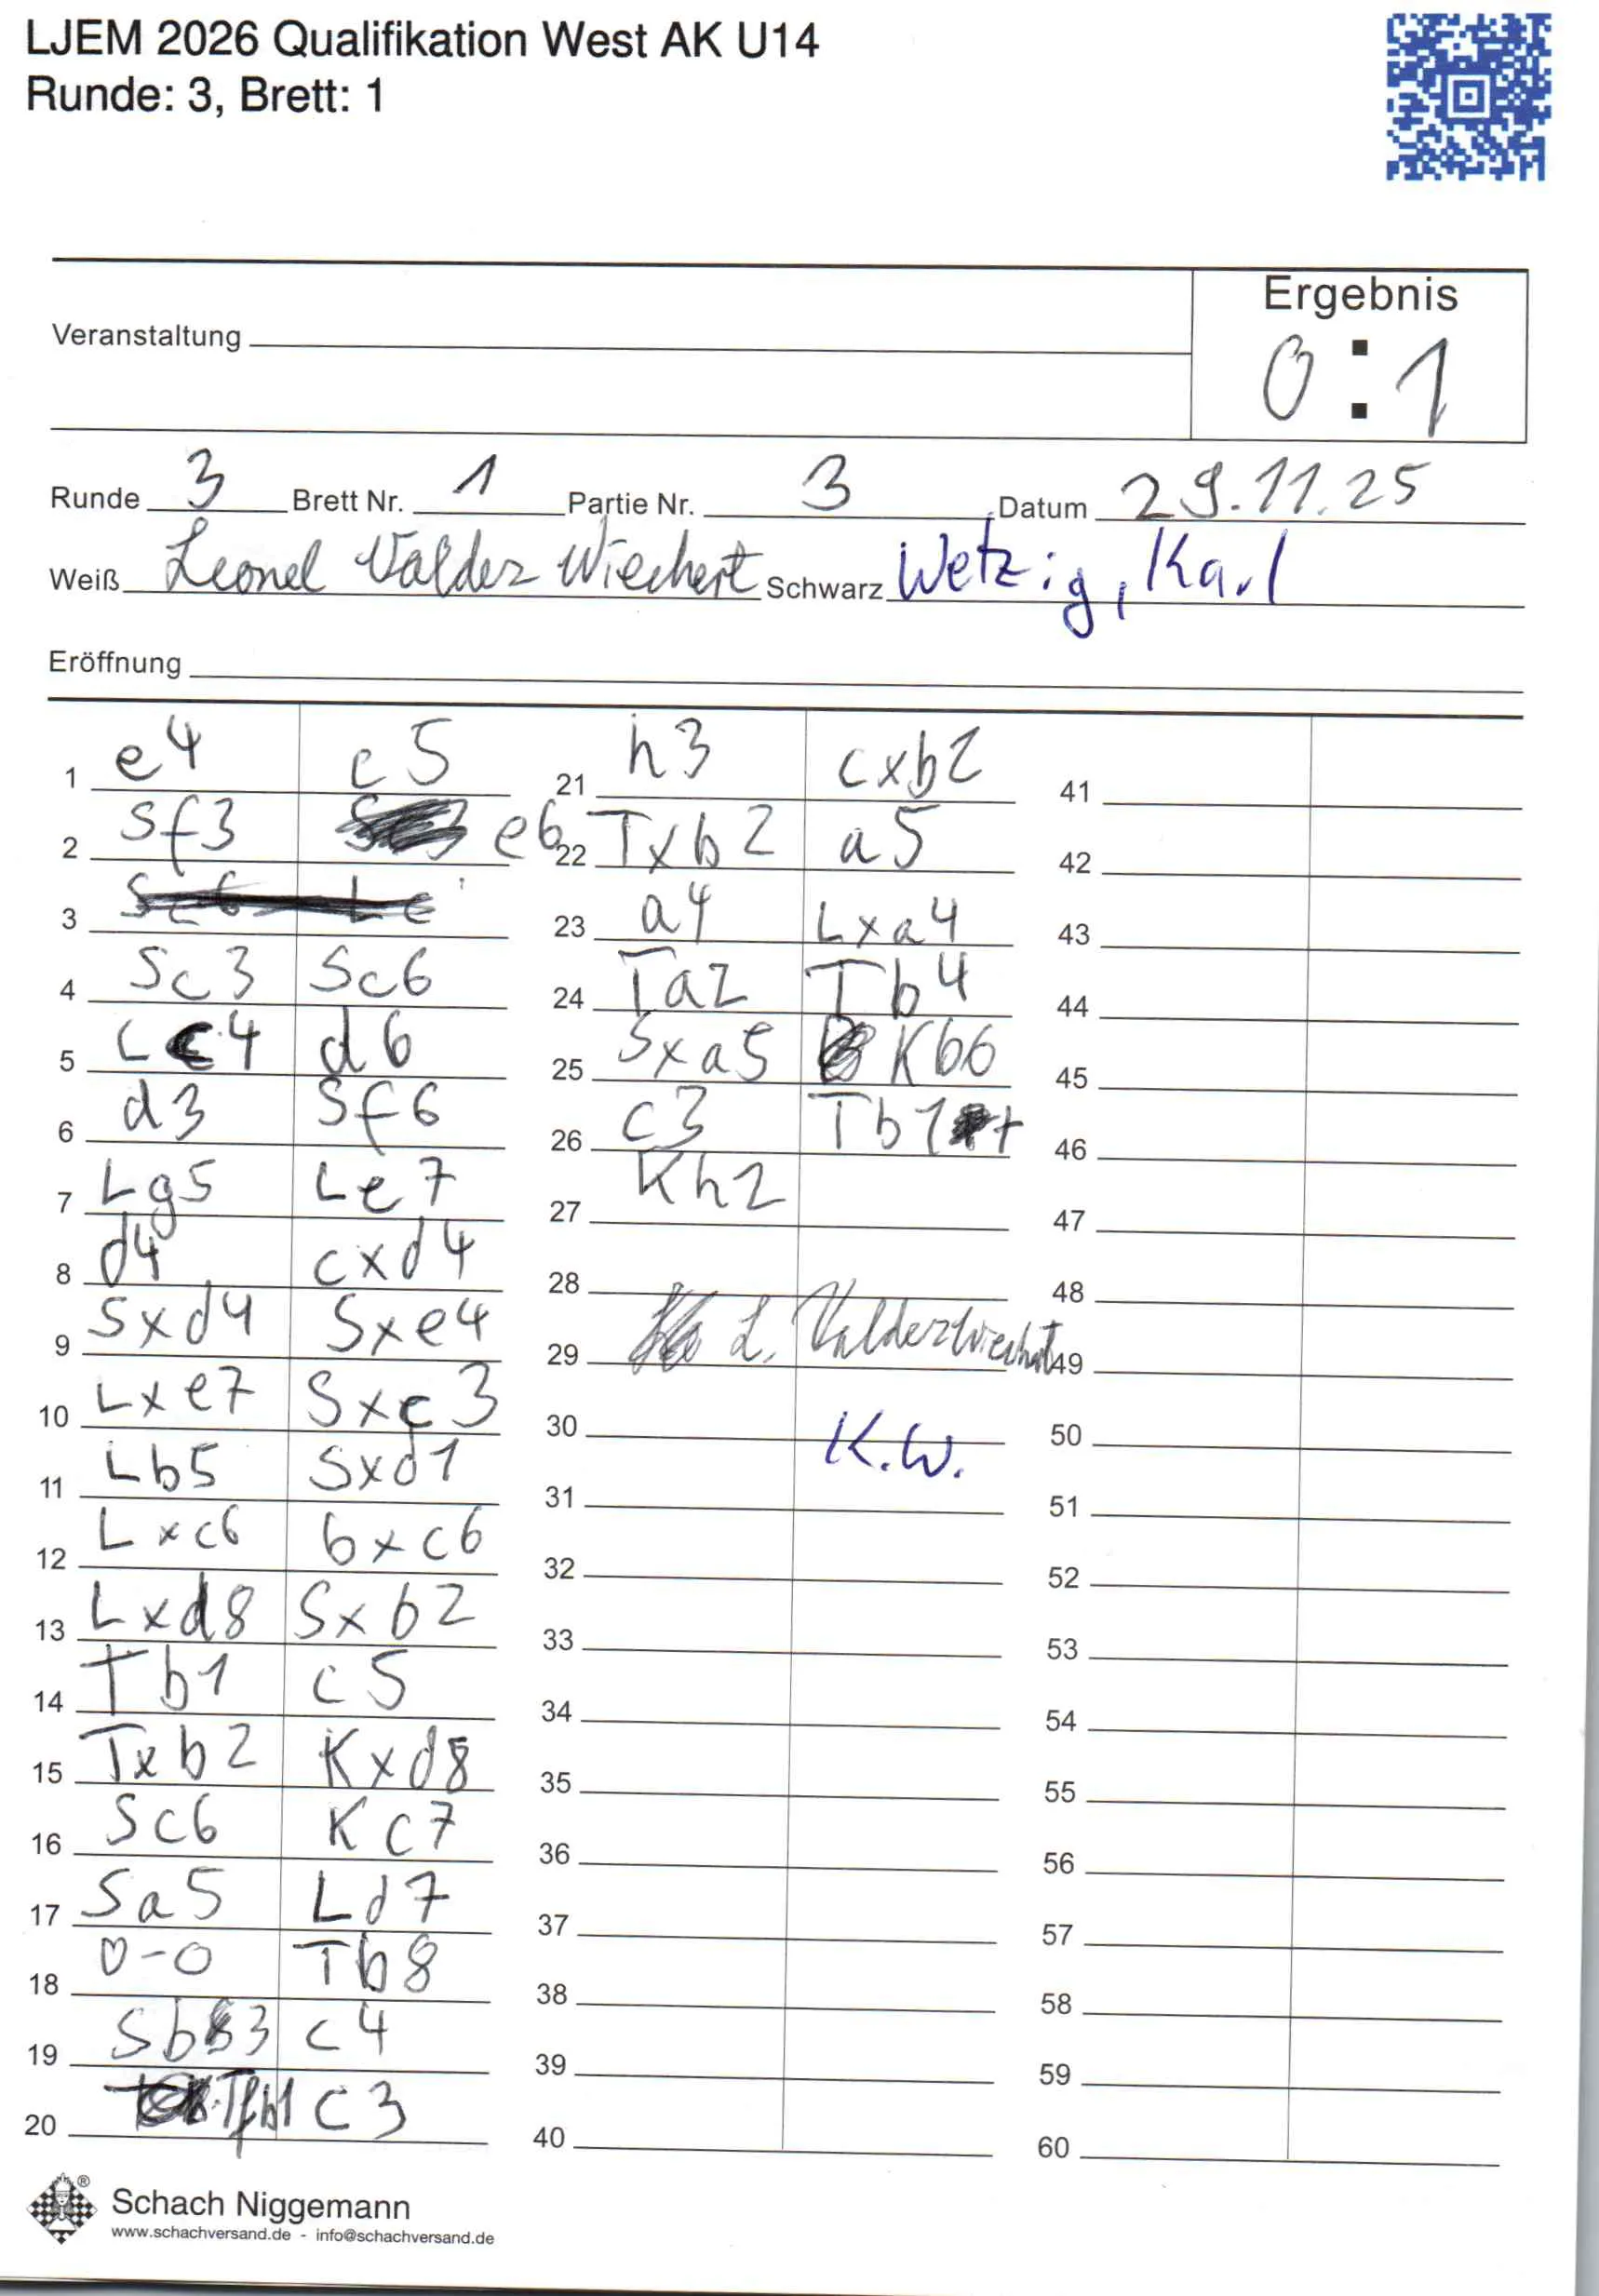 LJEM 2026 Qualifikation West AK U14
Runde: 3, Brett: 1
Ergebnis
Veranstaltung
0 : 1
Runde 3 Brett Nr. 1 Partie Nr. 3 Datum 29.11.25
Weiß Leonel Valdez Wiechert Schwarz Wetzig, Karl
Eröffnung
1 e4 c5
2 Sf3 e6
3
4 Sc3 Sc6
5 Lc4 d6
6 d3 Sf6
7 Lg5 Le7
8 d4 cxd4
9 Sxd4 Sxe4
10 Lxe7 Sxc3
11 Lb5 Sxd1
12 Lxc6 bxc6
13 Lxd8 Sxb2
14 Tb1 c5
15 Txb2 Kxd8
16 Sc6 Kc7
17 Sa5 Ld7
18 0-0 Tb8
19 Sb3 c4
20 Tfb1 c3
21 h3 cxb2
22 Txb2 a5
23 a4 Lxa4
24 Ta2 Tb4
25 Sxa5 Kb6
26 c3 Tb1+
27 Kh2
28
29 L. Valdez Wiechert
30 K.W.
31
32
33
34
35
36
37
38
39
40
41
42
43
44
45
46
47
48
49
50
51
52
53
54
55
56
57
58
59
60
Schach Niggemann
www.schachversand.de - info@schachversand.de